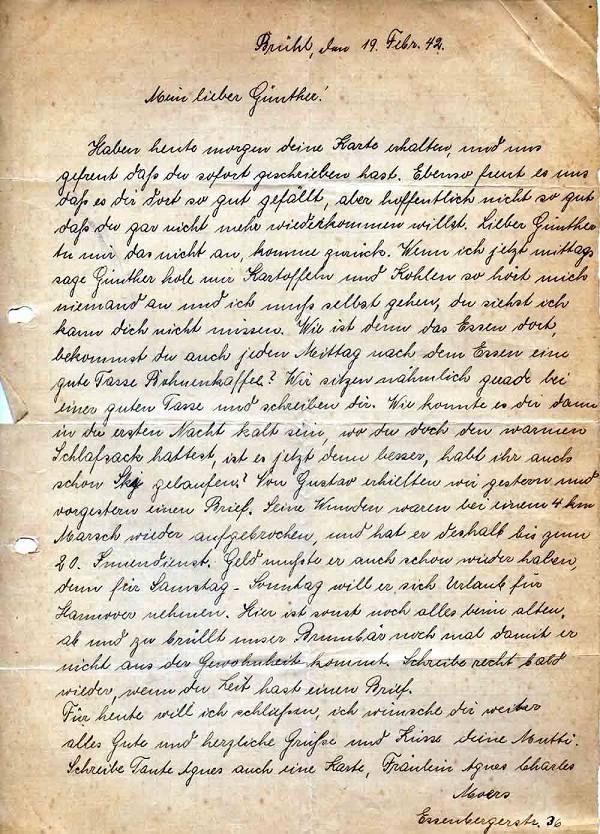 Brühl, den 19. Febr. 42.
Mein lieber Günther!
Haben heute morgen deine Karte erhalten, und uns
gefreut daß du sofort geschrieben hast. Ebenso freut es uns
daß es dir dort so gut gefällt, aber hoffentlich nicht so gut
daß du gar nicht mehr wiederkommen willst. Lieber Günther
tu mir das nicht an, komme zurück. Wenn ich jetzt mittags
sage Günther hole mir Kartoffeln und Kohlen so hört mich
niemand an und ich muß selbst gehen, du siehst ich
kann dich nicht missen. Wie ist denn das Essen dort,
bekommst du auch jeden Mittag nach dem Essen eine
gute Tasse Bohnenkaffee? Wir sitzen nähmlich gerade bei
einer guten Tasse und schreiben dir. Wie konnte es dir dann
in der ersten Nacht kalt sein, wo du doch den warmen
Schlafsack hattest, ist es jetzt denn besser, habt ihr auch
schon Ski gelaufen? Von Gustav erhielten wir gestern und
vorgestern einen Brief. Seine Wunden waren bei einem 4 km
Marsch wieder aufgebrochen, und hat er deshalb bis zum
20. Innendienst. Geld mußte er auch schon wieder haben,
denn für Samstag - Sonntag will er sich Urlaub für
Hannover nehmen. Hier ist sonst noch alles beim alten,
ab und zu brüllt unser Brumbär noch mal damit er
nicht aus der Gewohnheit kommt. Schreibe recht bald
wieder, wenn du Zeit hast einen Brief.
Für heute will ich schließen, ich wünsche dir weiter
alles Gute und herzliche Grüße und Küsse deine Mutti.
Schreibe Tante Agnes auch eine Karte, Fräulein Agnes Charles
Moers
Essenbergerstr. 36